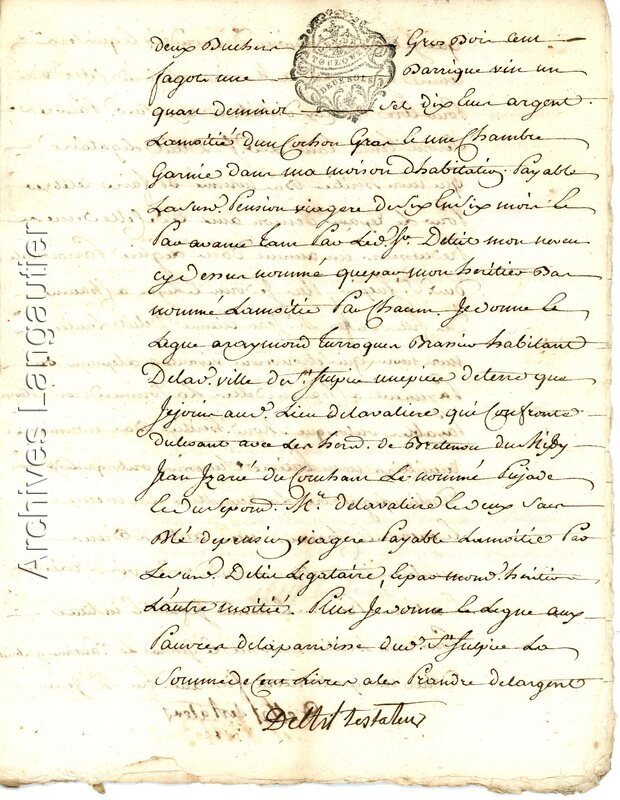 deux Buchers Gros Bois cent
fagots une Barrique vin un
quart deminot sel dix Livres argent
Lamoitié dun Cochon Gras et une Chambre
Garnie dans ma maison dhabitation Payable
Pension viagere de six En six mois et
Par avance tant Par led. Sr. Deltil mon neveu
cy dessus nommé que par mon heritier Bas
nommé Lamoitié Par Chacun. Je donne et
Legue a raymond Brassier habitant
Delad. ville de St. Sulpice une piece de terre que
Jejouis aud. Lieu delavaliere, qui Confronte
du levant avec Les herd. de du Midy
Jean du Couchant Le nommé Pujade
et du Mr. delavaliere et deux sacs
Blé de pension viagere Payable Lamoitié Par
Deltil Legataire, et par mond. héritier
L'autre moitié. Plus Je donne et Legue aux
Pauvres de la parroisse dud. St. Sulpice La
Somme de Cent Livres a les Prandre de largent
Deltil testateur
TOULOUSE
DEUX SOLS
Archives Langautier